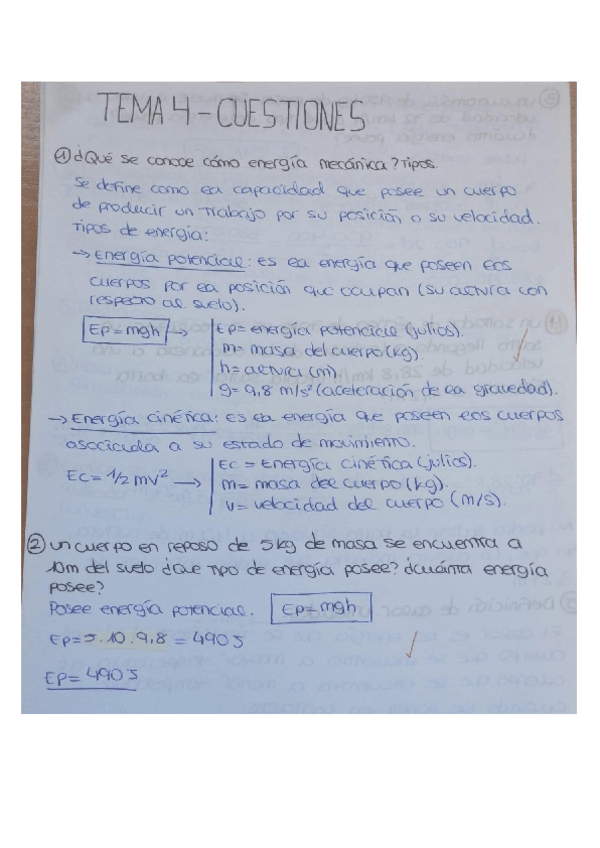 TEMA 4 - CUESTIONES
① ¿Qué se conoce cómo energía mecánica? Tipos.
Se define como la capacidad que posee un cuerpo
de producir un trabajo por su posición o su velocidad.
Tipos de energía:
→ Energía potencial: es la energía que poseen los
cuerpos por la posición que ocupan (su altura con
respecto al suelo).
Ep=mgh →
Ep= energía potencial (julios).
m= masa del cuerpo (kg).
h= altura (m)
g= 9,8 m/s² (aceleración de la gravedad).
→ Energía cinética: es la energía que poseen los cuerpos
asociada a su estado de movimiento.
Ec = 1/2 mv² →
Ec = Energía cinética (julios).
m= masa del cuerpo (kg).
v= velocidad del cuerpo (m/s).
② Un cuerpo en reposo de 5kg de masa se encuentra a
10m del suelo ¿Que tipo de energía posee? ¿cuánta energía
posee?
Posee energía potencial. Ep=mgh
Ep=5.10.9,8 = 490J
Ep= 490J